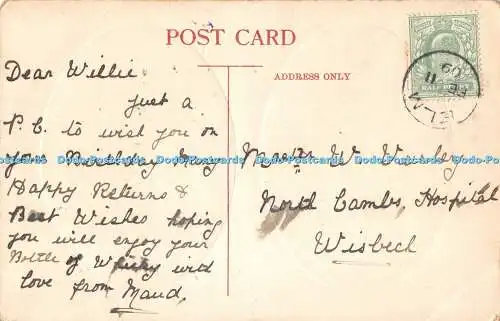 POST CARD
ADDRESS ONLY
HALFPENNY
Dear Willie
just a
P.C. to wish you on
your Birthday Many
Happy Returns &
Best Wishes hoping
you will enjoy your
Bottle of with
love from Maud,
Master W.
North Cambs, Hospital
Wisbech
Dodo-Postcards Dodo-Postcards Dodo-Postcards Dodo-Postcards Dodo-Postcards